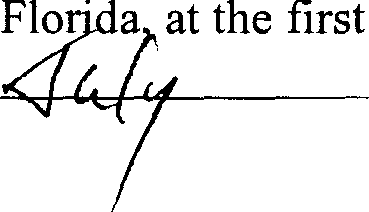 Florida, at the first
July